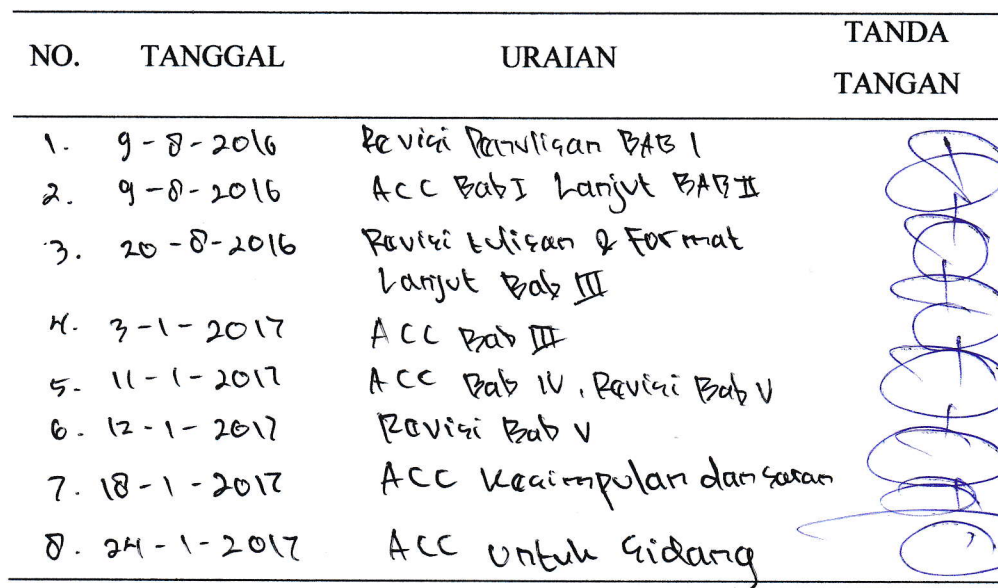 NO. TANGGAL URAIAN TANDA TANGAN
1. 9-8-2016 Revisi Penulisan BAB I
2. 9-8-2016 ACC Bab I Lanjut BAB II
3. 20-8-2016 Revisi tulisan & Format
Lanjut Bab III
4. 3-1-2017 ACC Bab III
5. 11-1-2017 ACC Bab IV, Revisi Bab V
6. 12-1-2017 Revisi Bab V
7. 18-1-2017 ACC Kesimpulan dan saran
8. 24-1-2017 ACC untuk Sidang